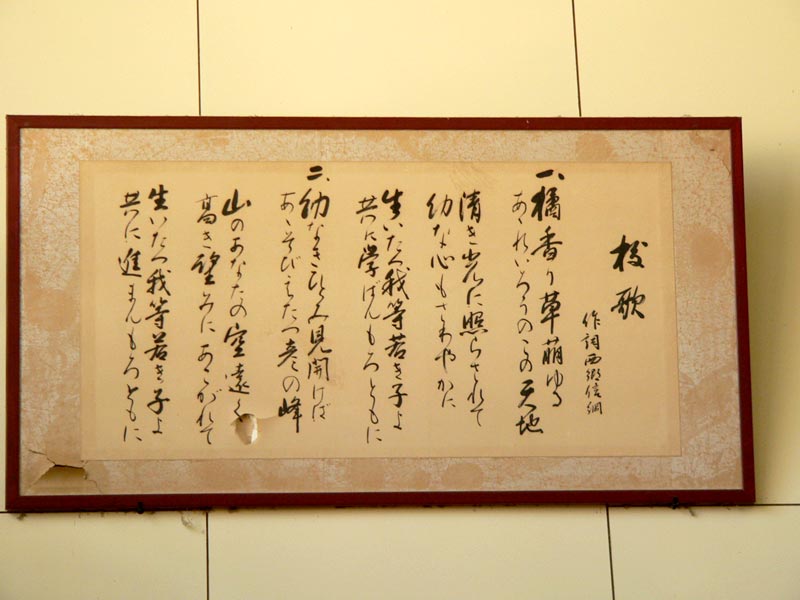 校歌
作詞西郷信綱
一、橘香り草萌ゆる
あゝれいろうのこの天地
清き光に照らされて
幼な心もさわやかに
生いたつ我等若き子よ
共に学ばんもろともに
二、幼なきひとみ見開けば
あゝそびえたつ彦の峰
山のあなたの空遠く
高き望みにあこがれて
生いたつ我等若き子よ
共に進まんもろともに